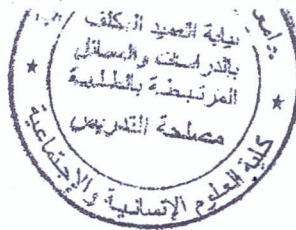 نيابة العميد المكلف
بالدراسات والمسائل
المرتبطة بالطلبة
مصلحة التدريس
كلية العلوم الإنسانية والإجتماعية